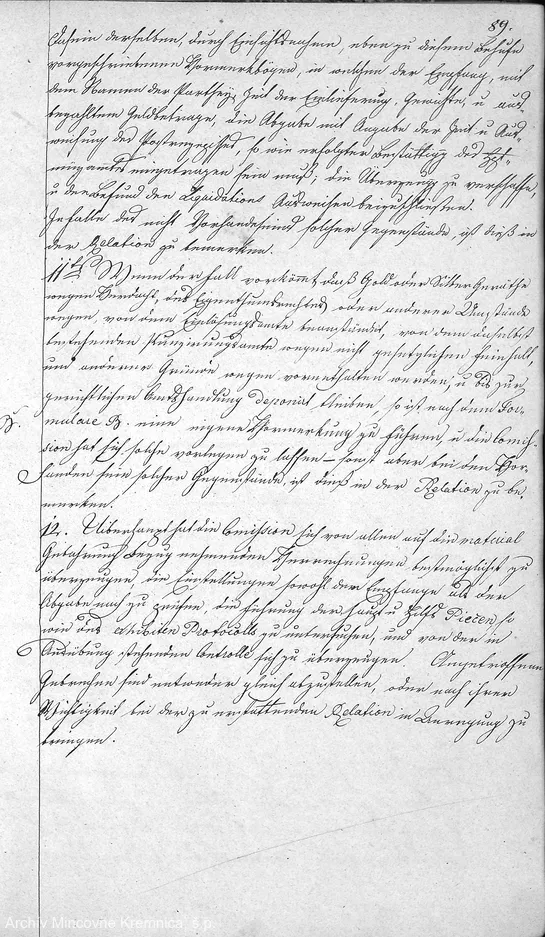 89.
Dasein derselben, durch Einsichtnahme, eben zu diesem Behufe
vorgeschriebenen Vormerkbögen, in welchen der Empfang, mit
dem Namen der Parthey, Zeit der Einlieferung, Gewichte, u aus-
bezahltem Geldbetrage, die Abgabe mit Angabe der Zeit u Aus-
weisung des Postrezepisses, so wie erfolgter Bestättigg des
eingetragen sein muß; die Überzeugg zu verschaffen,
u den Befund den Liquidations Ausweisen beizuschließen.
Im Falle des nicht Vorhandenseins solcher Gegenstände, ist dieß in
der Relation zu bemerken.
11tens Wenn der Fall vorkömmt, daß Gold oder Silber Geräthe
wegen Verdacht, des Eigenthumsrechtes, oder anderer Umstände
wegen, von dem Einlösungsamte beanständet, von dem daselbst
bestehenden Punzirungsamte wegen nicht gesetzlichen Feinhalt
und anderer Gründe wegen vorenthalten werden, u bis zur
gerichtlichen Amtshandlung deponirt bleiben, so ist nach dem For-
B.
mulare B. eine eigene Vormerkung zu führen, u die Comis-
sion hat sich solche vorlegen zu lassen – sonst aber bei den Vor-
handen sein solcher Gegenstände, ist dieß in der Relation zu be-
merken.
12. Uiberhaupt hat die Comission sich von allen auf die material
Gebahrung Bezug nehmenden Verrechnungen bestmöglichst zu
überzeugen, die Einstellungen sowohl der Empfänge als der
Abgabe nach zu sehen, die Führung der Haupt u Hilfs Piecen, so
wie des exhibiten Protocolls zu untersuchen, und von der in
Ausübung stehenden Controlle sich zu überzeugen. Angetroffene
Gebrechen sind entweder gleich abzustellen, oder nach ihrer
Wichtigkeit bei der zu erstattenden Relation in Anregung zu
bringen.
Archív Mincovne Kremnica, š.p.